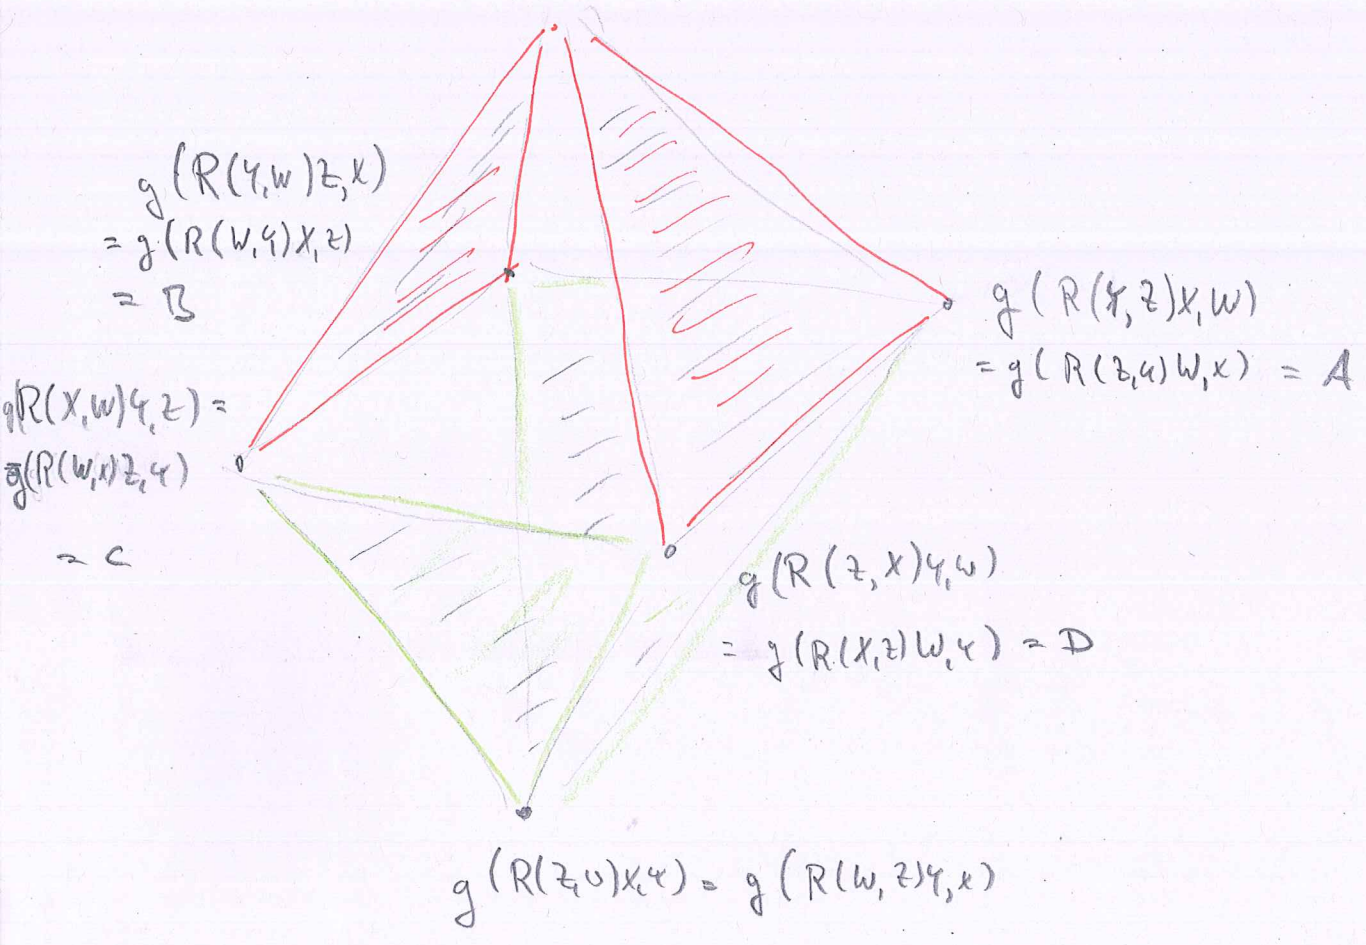 g(R(Y,W)Z,X)
= g(R(W,Y)X,Z)
= B
g(R(Y,Z)X,W)
= g(R(Z,Y)W,X) = A
g(R(X,W)Y,Z) =
g(R(W,X)Z,Y)
= C
g(R(Z,X)Y,W)
= g(R(X,Z)W,Y) = D
g(R(Z,W)X,Y) = g(R(W,Z)Y,X)